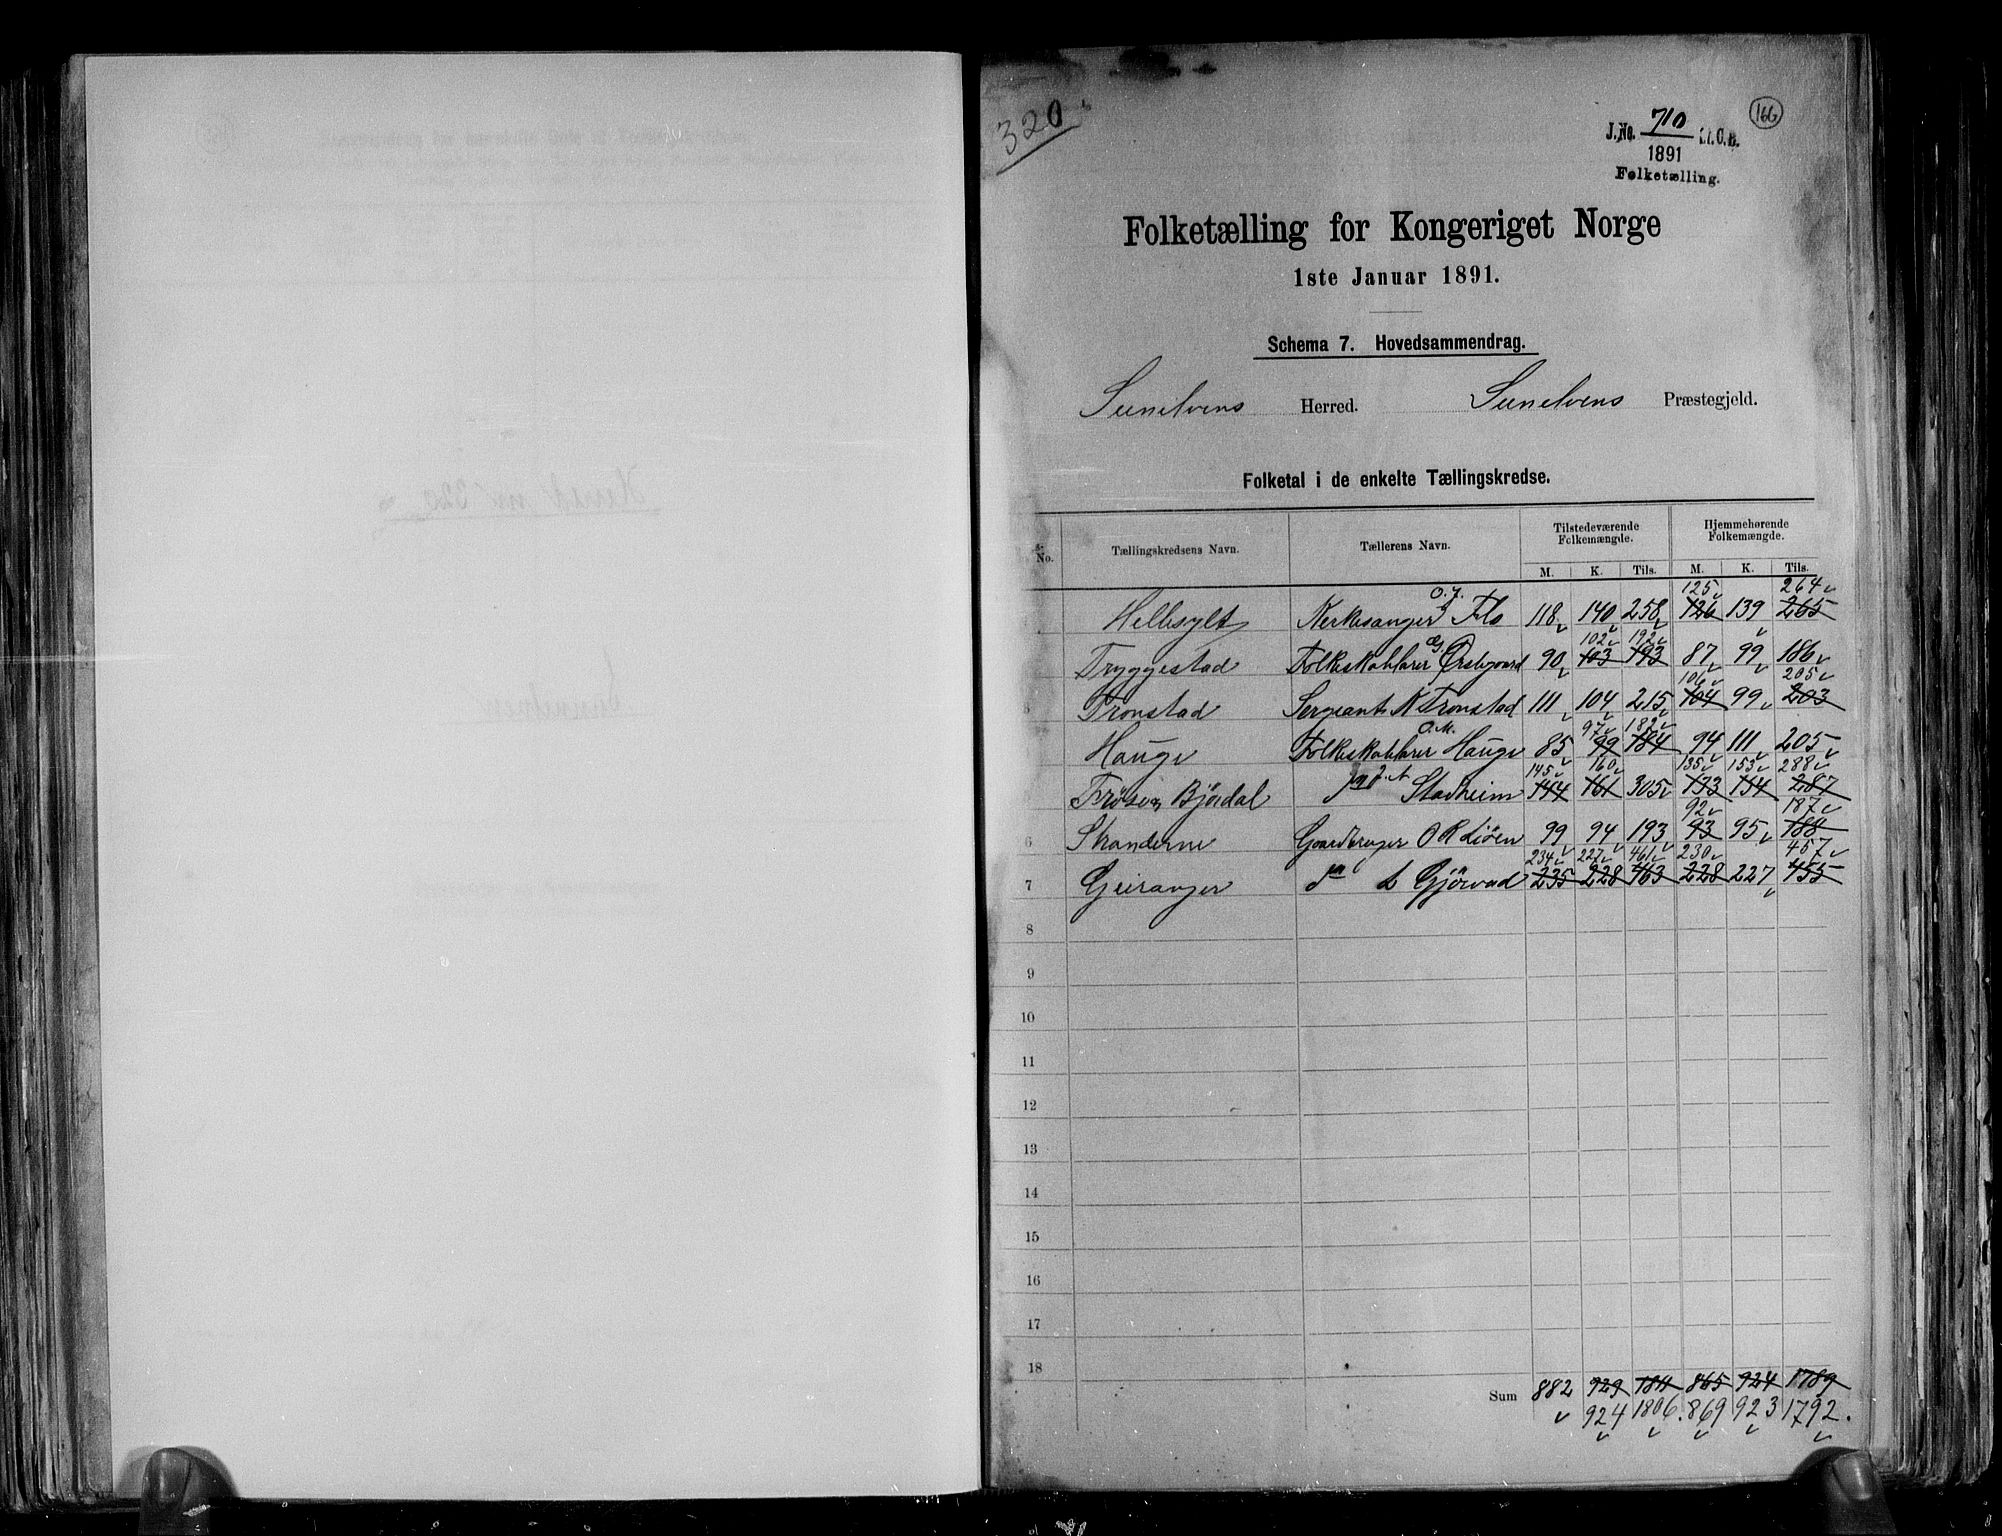 320
166
J.No. 710
1891
Folketælling.
Folketælling for Kongeriget Norge
1ste Januar 1891.
Schema 7. Hovedsammendrag.
Sunelvens Herred. Sunelvens Præstegjeld.
Folketal i de enkelte Tællingskredse.
No. Tællingskredsens Navn. Tællerens Navn. Tilstedeværende Folkemængde. Hjemmehørende Folkemængde.
M. K. Tils. M. K. Tils.
125 264
Hellesylt Kirkesanger Flo 118 140 258 126 139 265
102 192
Tryggestad Folkeskolelærer Ørskogaard 90 103 193 87 99 186
106 205
Tronstad Sergeant K Tronstad 111 104 215 104 99 203
O.M. 97 182
Hauge Folkeskolelærer Hauge 85 99 184 94 111 205
145 160 135 153 288
Frøsø Björdal Stadheim 144 161 305 133 154 287
92 187
6 Stranderne Gaardbruger O R Liöen 99 94 193 93 95 188
234 227 461 230 457
7 Geiranger L Gjörvad 235 228 463 228 227 455
8
9
10
11
12
13
14
15
16
17
18
Sum 882 929 1811 865 924 1789
924 1806. 869 923 1792.